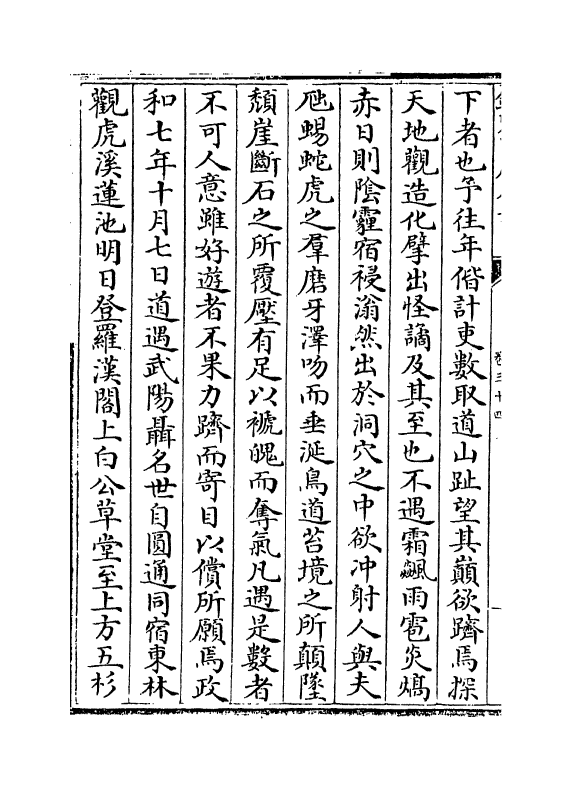 下者也予往年偕計吏數取道山趾望其巔欲躋焉探
天地觀造化擘出怪譎及其至也不遇霜飆雨雹炎熇
赤日則陰霾宿祲滃然出於洞穴之中欲冲射人與夫
虺蜴蛇虎之羣磨牙澤吻而垂涎鳥道苔境之所顛墜
頽崖斷石之所覆壓有足以褫魄而奪氣凡遇是數者
不可人意雖好遊者不果力躋而寄目以償所願焉政
和七年十月七日道遇武陽聶名世自圓通同宿東林
觀虎溪蓮池明日登羅漢閣上白公草堂至上方五杉
卷三十四